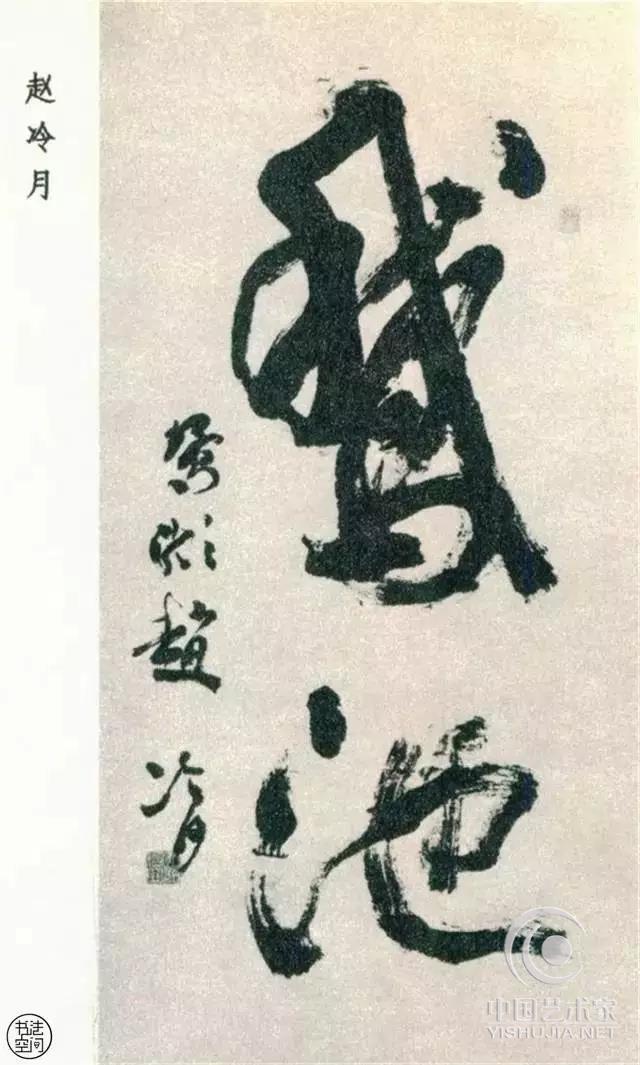 赵冷月
鵞池
趙冷月
中国艺术家
YISHUJIA.NET
书法
空间